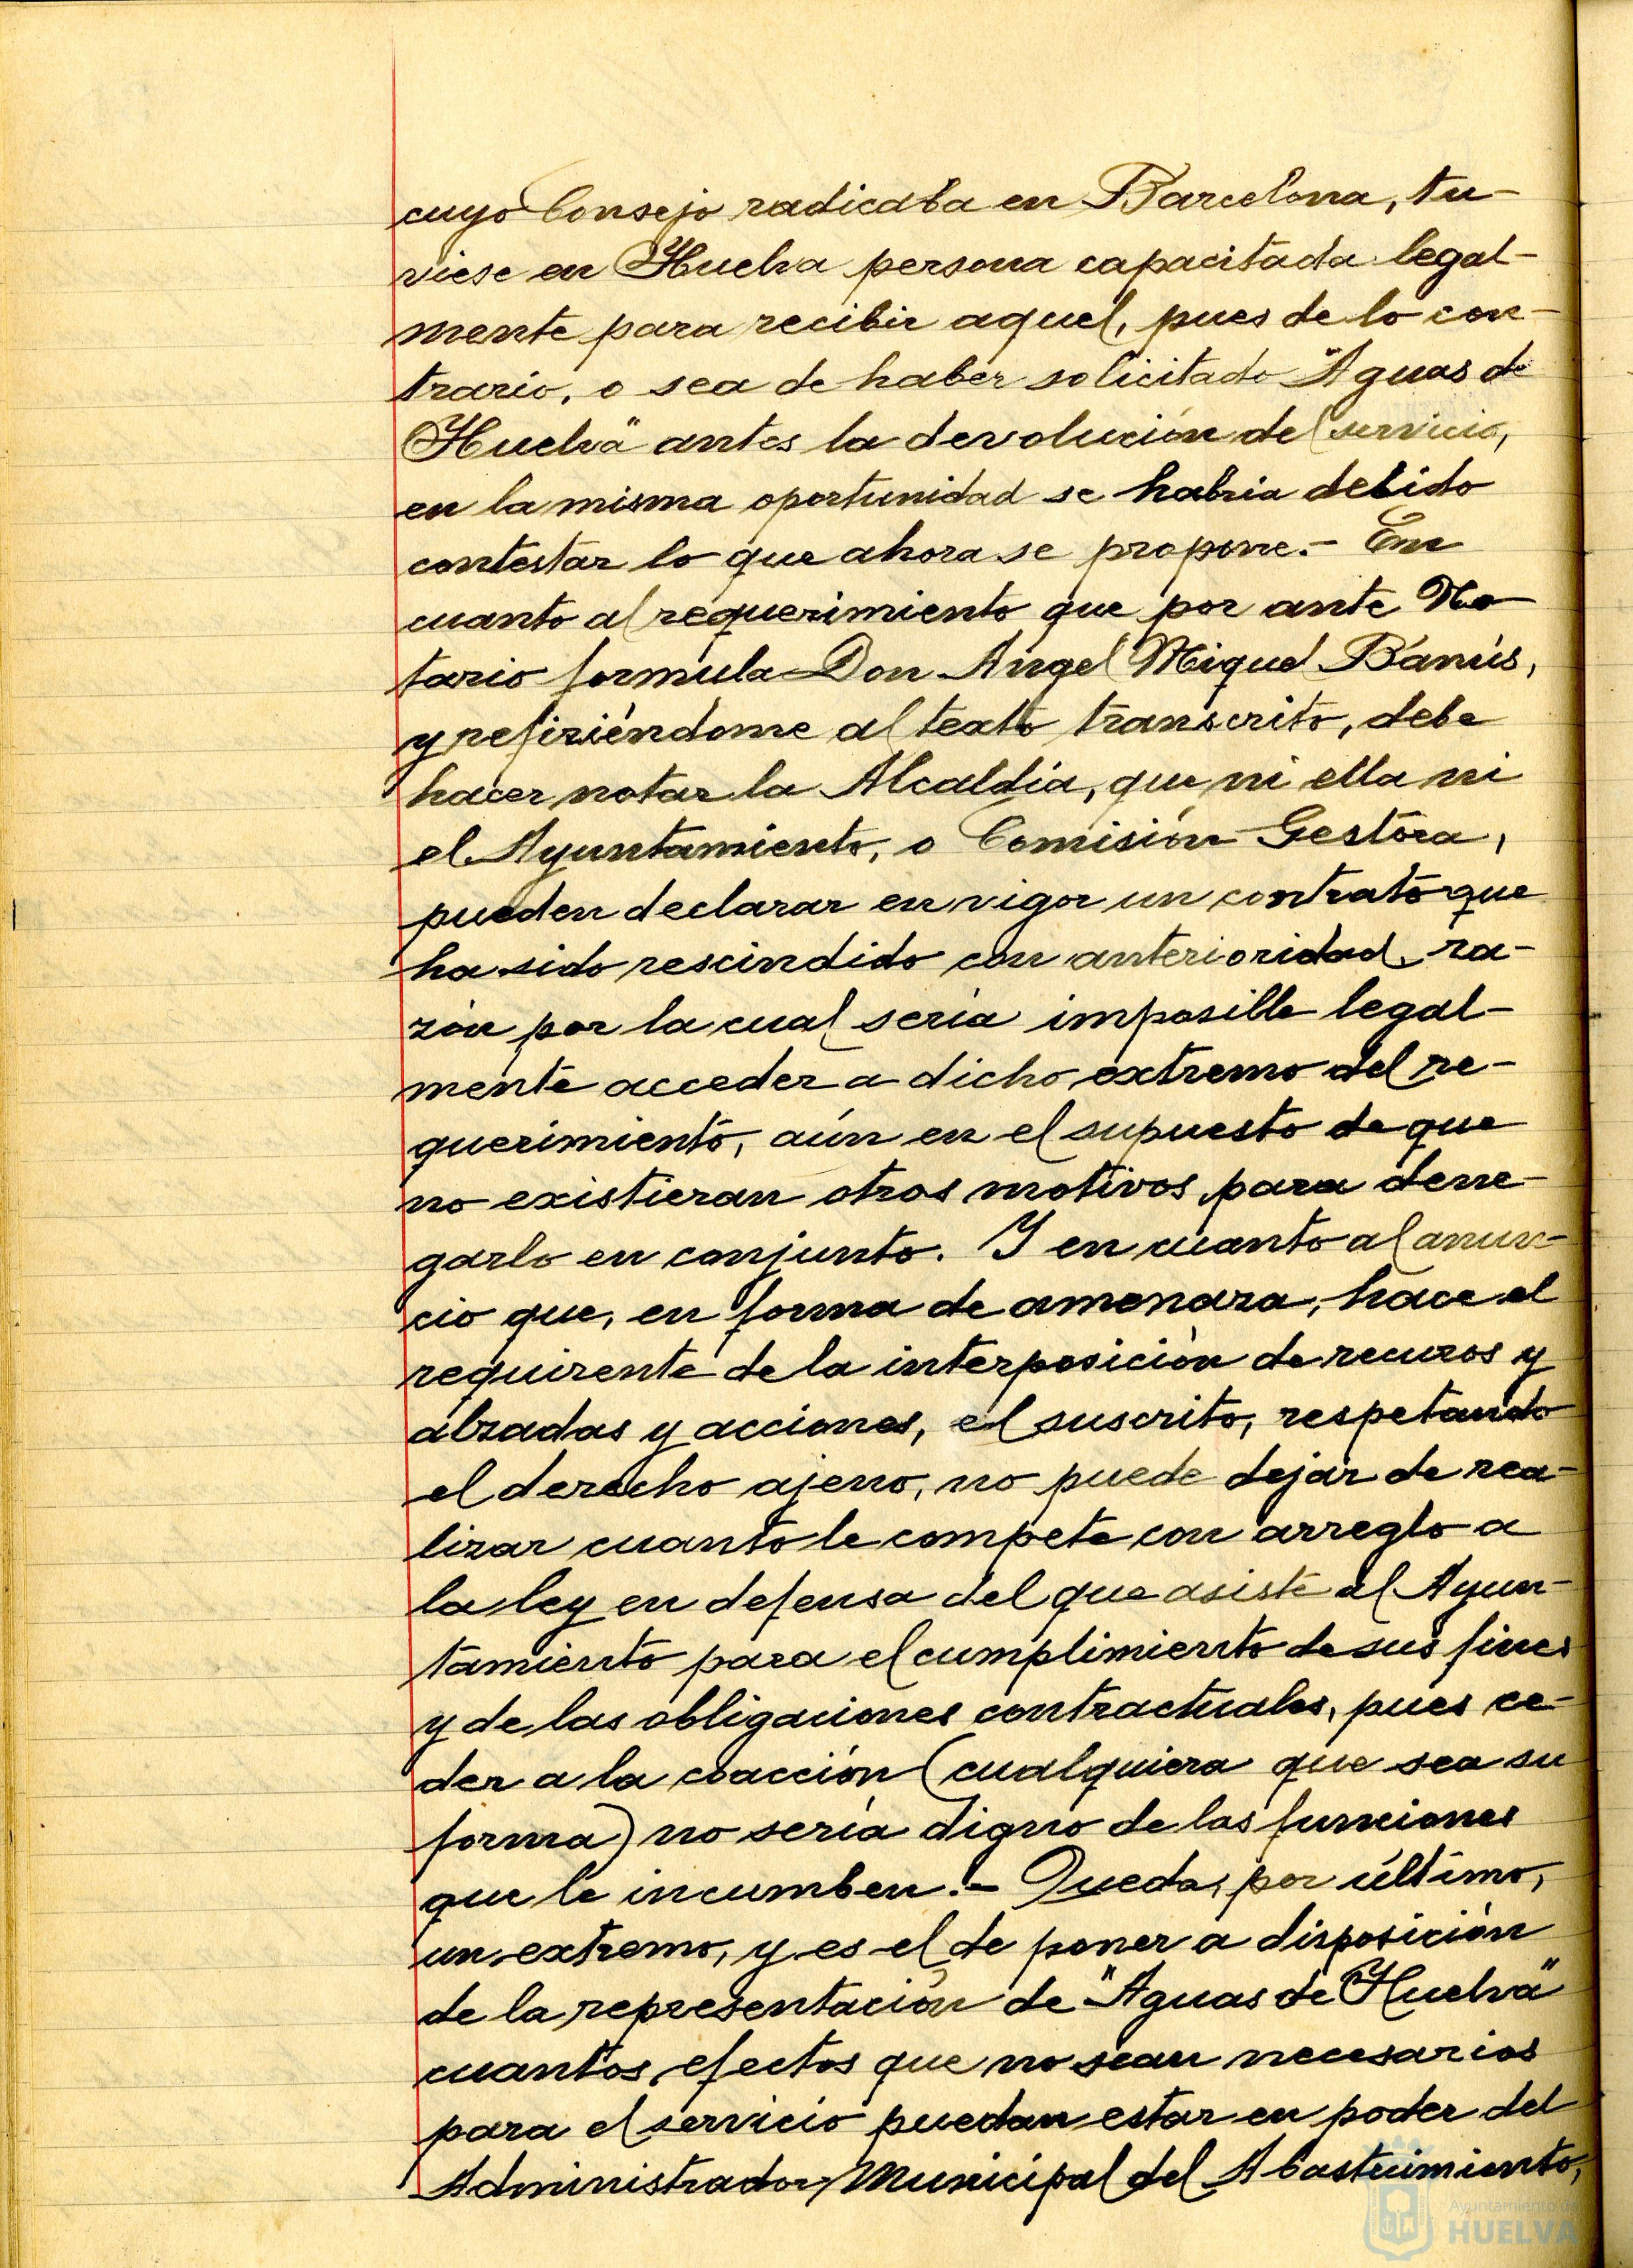 cuyo Consejo radicaba en Barcelona, tu-
viese en Huelva persona capacitada legal-
mente para recibir aquel, pues de lo con-
trario, o sea de haber solicitado "Aguas de
Huelva" antes la devolución del servicio,
en la misma oportunidad se habria debido
contestar lo que ahora se propone.- En
cuanto al requerimiento que por ante No-
tario formula Don Angel Miquel Banús,
y refiriéndome al texto transcrito, debe
hacer notar la Alcaldía, que ni ella ni
el Ayuntamiento, o Comisión Gestora,
pueden declarar en vigor un contrato que
ha sido rescindido con anterioridad, ra-
zón por la cual sería imposible legal-
mente acceder a dicho extremo del re-
querimiento, aún en el supuesto de que
no existieran otros motivos para dene-
garlo en conjunto. Y en cuanto al anun-
cio que, en forma de amenaza, hace el
requirente de la interposición de recuros y
alzadas y acciones, el suscrito, respetando
el derecho ajeno, no puede dejar de rea-
lizar cuanto le compete con arreglo a
la ley en defensa del que asiste al Ayun-
tamiento para el cumplimiento de sus fines
y de las obligaciones contractuales, pues ce-
der a la coacción (cualquiera que sea su
forma) no sería digno de las funciones
que le incumben.- Queda, por último,
un extremo, y es el de poner a disposición
de la representación de "Aguas de Huelva"
cuantos efectos que no sean necesarios
para el servicio puedan estar en poder del
Administrador Municipal del Abastecimiento,
Ayuntamiento de
HUELVA